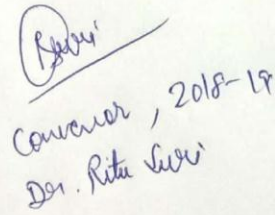 Convenor, 2018-19
Dr. Ritu Suri